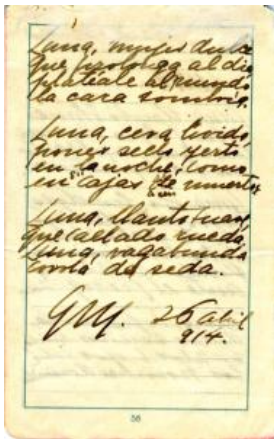 Luna, mujer dulce
que prolonga al día,
platéale al mundo
la cara sombría.
Luna, cera lívida,
pones sello yerto
en la noche, como
en cajas de muerto
Luna, llanto suave
que callado rueda,
Luna, vagabunda
corola de seda.
26 abril
914.
56